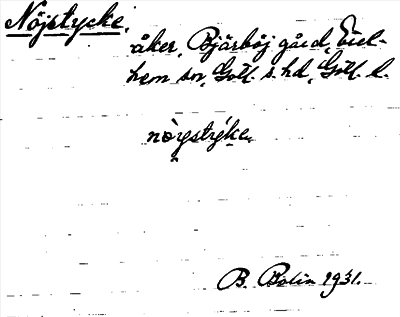 Nöjstycke,
åker, Bjärböj gård, Eksl-
hem sn, Gotl. s. hd, Gotl. l.
nöystyke.
B. Bolin 1931.